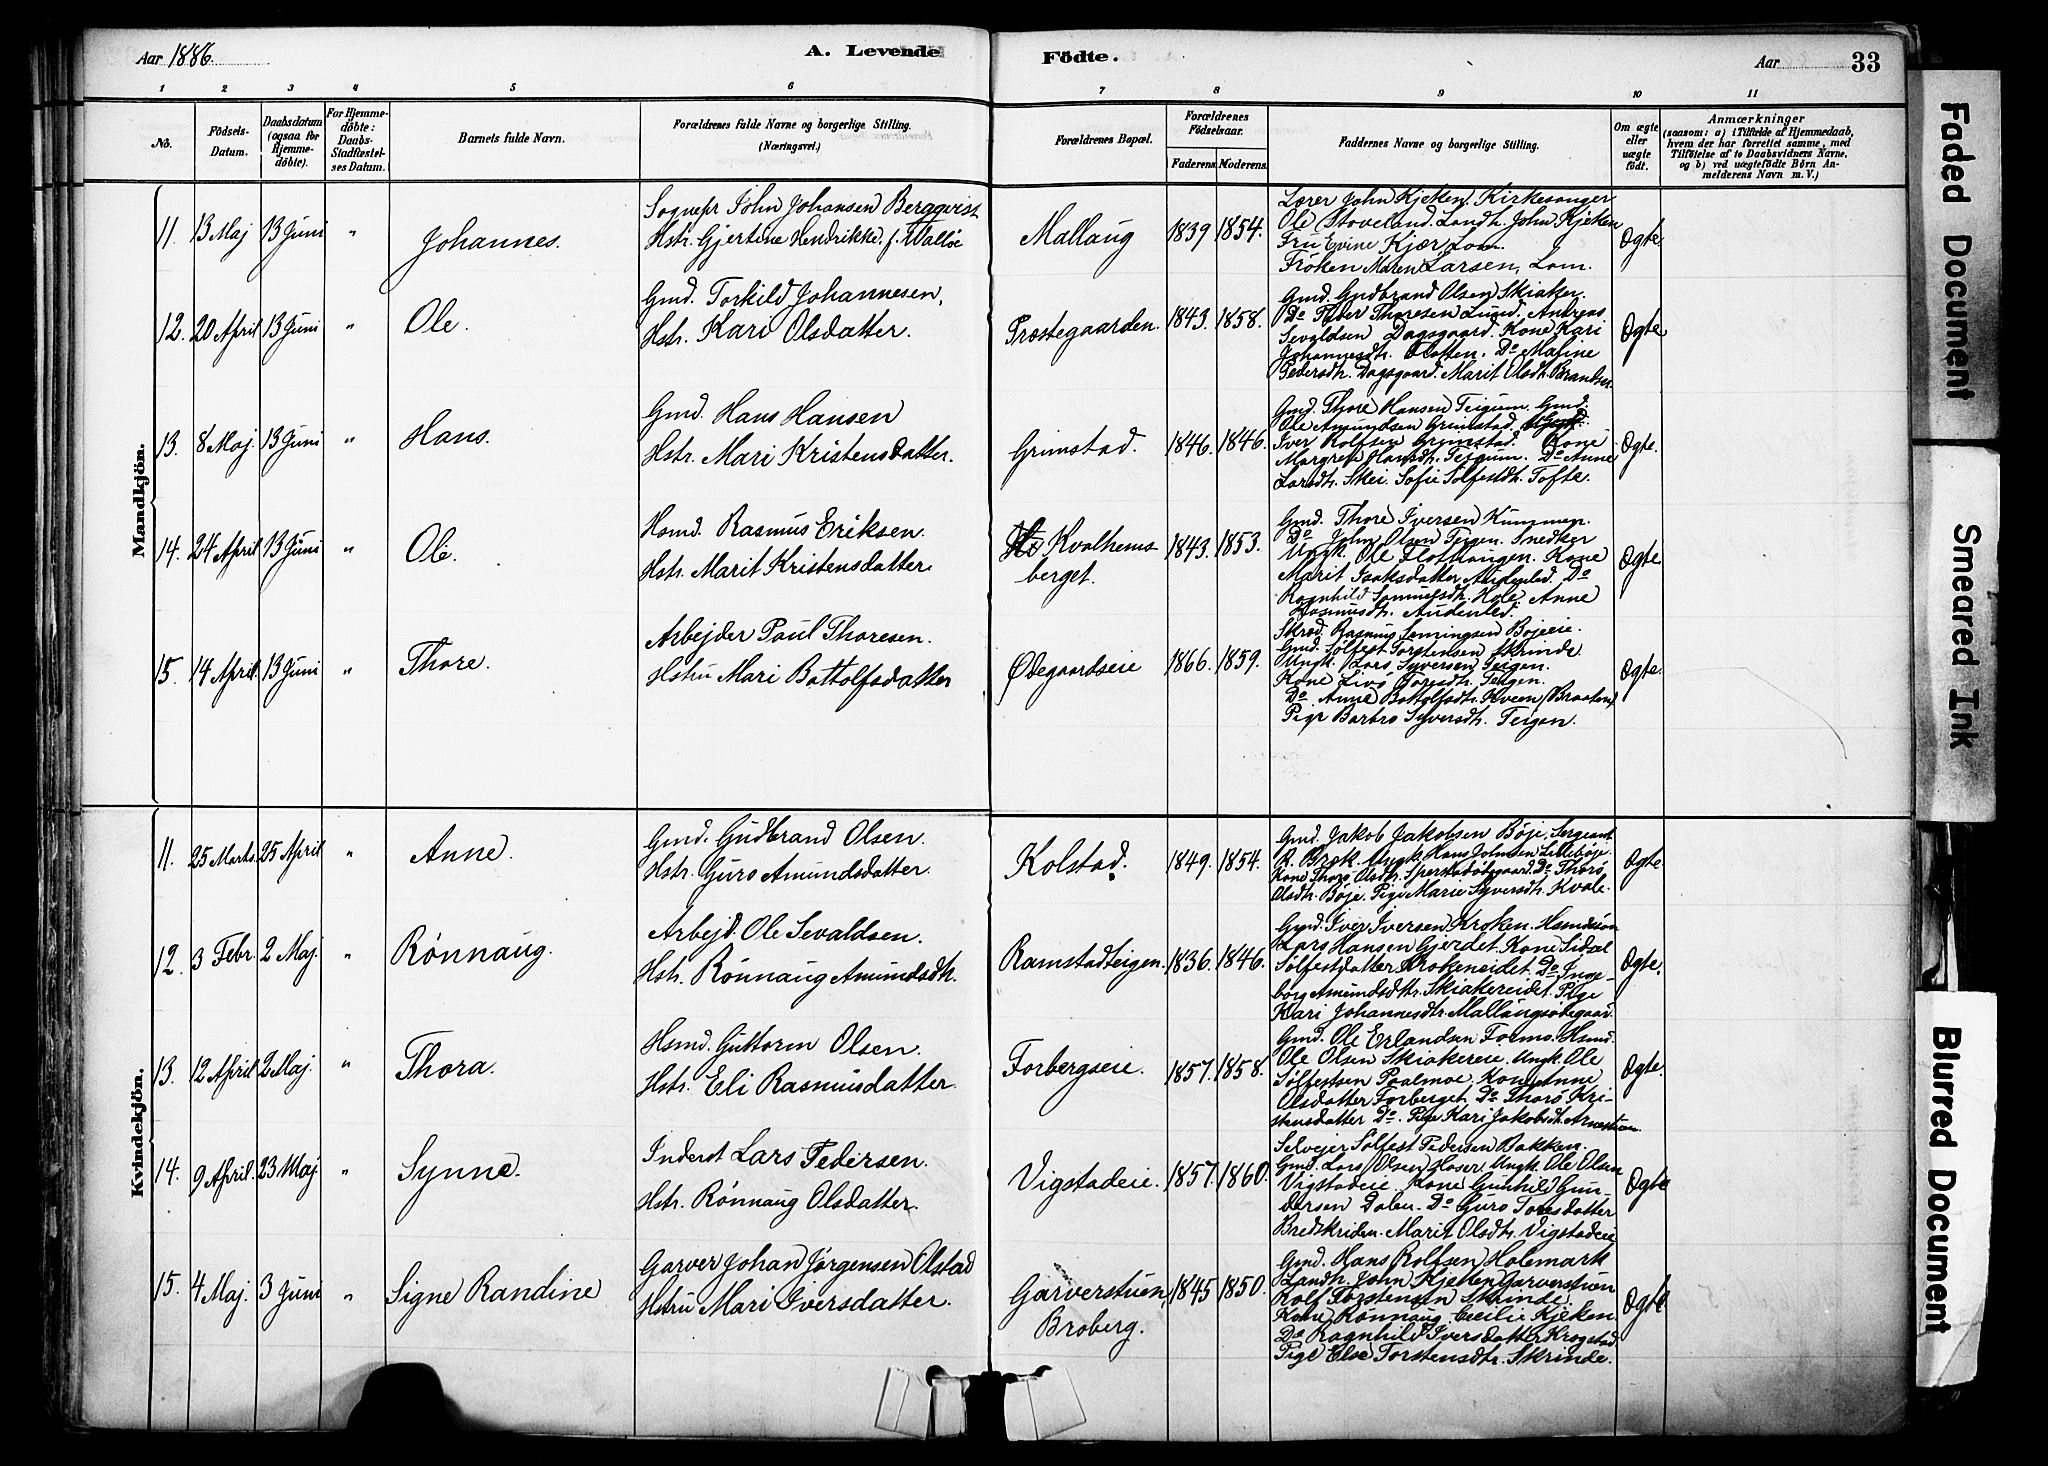 Aar 1886.
A. Levende
Födte.
Aar
33
1 2 3 4 5 6 7 8 9 10 11
No.
Födsels-Datum.
Daabsdatum (ogsaa for Hjemme-döbte).
For Hjemme-döbte: Daabs-Stadfæstelses Datum.
Barnets fulde Navn.
Forældrenes fulde Navne og borgerlige Stilling.
(Næringsvei.)
Forældrenes Bopæl.
Forældrenes Födselsaar.
Faderens. Moderens.
Faddernes Navne og borgerlige Stilling.
Om ægte eller uægte födt.
Anmærkninger
(saasom: a) i Tilfælde af Hjemmedaab,
hvem der har forrettet samme, med
Tilföielse af to Daabsvidners Navne,
og b) ved uægtefödte Börn An-
melderens Navn m. V.)
Mandkjön.
11. 13 Maj 13 Juni " Johannes.
Sognepr John Johansen Bergqvist
Hstr. Gjertine Hendrikke f. Walløe
Mallaug 1839 1854.
Lærer John Kjæken. Kirkesanger
Ole Stoveland. Landh. John Kjæken
Fru Evine Kjær Lom.
Frøken Maren Larsen, Lom.
Ægte
12. 20 April 13 Juni " Ole.
Gmd. Torkild Johannesen,
Hstr. Kari Olsdatter.
Præstegaarden. 1843. 1858.
Gmd. Gudbrand Olsen Skiaker.
Do Peder Thoresen Lund. Andreas
Sevaldsen Dagsgaard. Kone Kari
Johannesdtr. Flatten. Do Maline
Pedersdtr. Dagsgaard. Marit Olsdtr.
Ægte
13. 8 Maj. 13 Juni " Hans.
Gmd. Hans Hansen
Hstr. Mari Kristensdatter.
Grimstad. 1846. 1846.
Gmd. Thore Hansen Teigum. Gmd.
Ole Amundsen Grimstad.
Iver Rolfsen Grimstad. Kone
Margrete Hansdtr. Teigum. Do Anne
Larsdtr. Skei. Sofie Sølfestdtr. Tofte.
Ægte.
14. 24 April 13 Juni " Ole.
Hsmd. Rasmus Eriksen.
Hstr. Marit Kristensdatter.
Kvalhems-
berget. 1843. 1853.
Gmd. Thore Iversen Kummen.
Do John Olsen Teigen. Snedker
Ungk. Ole Flothaugen. Kone
Marit Isaksdatter Andenled. Do
Ragnhild Samuelsdtr. Hole Anne
Rasmusdtr. Audenled.
Ægte
15. 14 April 13 Juni " Thore.
Arbejder Poul Thoresen.
Hstru Mari Bottolfsdatter
Ødegaardseie 1866. 1859.
Skræd. Rasmus Sæmingsen Bøjeeie.
Gmd. Sølfest Torstensen Skrinde
Ungk. Lars Syversen Teigen.
Kone Livø Toresdtr. Teigen.
Do. Anne Bottolfsdtr. Kveen (Braaten)
Pige Barbro Syversdtr. Teigen.
Ægte.
Kvindekjön.
11. 25 Marts. 25 April " Anne.
Gmd. Gudbrand Olsen.
Hstr. Guro Amundsdatter.
Kolstad. 1849. 1854.
Gmd. Jakob Jakobsen Bøje. Sergeant
R. Bræk. Ungk. Hans Johnsen Lillebøje.
Kone Thorø Olsdtr. Sperstadødegaard. Do Thorø
Olsdtr. Bøje. Pige Marie Syversdtr. Kvale.
Ægte
12. 3 Febr. 2 Maj. " Rønnaug.
Arbejd. Ole Sevaldsen.
Hstr. Rønnaug Amundsdtr.
Ramstadteigen. 1836. 1846.
Gmd. Iver Iversen Kroken. Hsmdssøn
Lars Hansen Gjerdet. Kone Sidsel
Sølfestdatter Krokeneidet. Do Inge-
borg Amundsdtr. Skiakereidet. Pige
Kari Johannesdtr. Mallaugsødegaard.
Ægte.
13. 12 April 2 Maj. " Thora.
Hsmd. Guttorm Olsen.
Hstr. Eli Rasmusdatter.
Forbergseie. 1857. 1858.
Gmd. Ole Erlandsen Formo. Hsmd.
Ole Olsen Skiakereie. Ungk. Ole
Sølfestsen Paalmoe. Kone Anne
Olsdatter Forberget. Do Thorø Kri-
stensdatter Do. Pige Kari Jakobsdtr.
Ægte.
14. 9 April. 23 Maj " Synne.
Inderst Lars Pedersen.
Hstr. Rønnaug Olsdatter.
Vigstadeie. 1857. 1860.
Selvejer Sølfest Pedersen Bakken.
Gmd. Lars Olsen Hoser. Ungk. Ole Olsen
Vigstadeie. Kone Gunhild Gun-
dersen Dalen. Do Guro Toresdatter
Bredskriden. Marit Olsdtr. Vigstadeie
Ægte
15. 4 Maj. 3 Juni " Signe Randine
Garver Johan Jørgensen Olstad
Hstru Mari Iversdatter.
Garverstuen,
Broberg. 1845 1850.
Gmd. Hans Rolfsen Holemark
Landh. John Kjæken Garverstuen
Rolf Torstensen Skrinde.
Kone Rønnaug Cecilie Kjæken
Do Ragnhild Iversdatter Krogstad
Pige Else Torstensdtr. Skrinde.
Ægte
Faded Document
Smeared Ink
Blurred Document